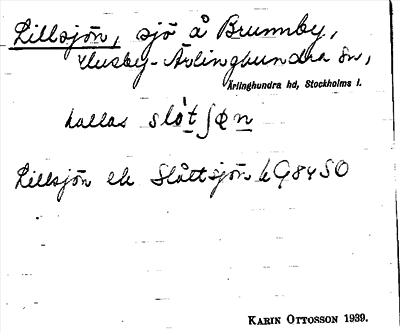 Lillsjön, sjö å Brunnby,
Husby-Ärlinghundra sn,
Ärlinghundra hd, Stockholms l.
kallas slòtʃøn
Lillsjön el. Slåttsjön k G84SO
KARIN OTTOSSON 1939.